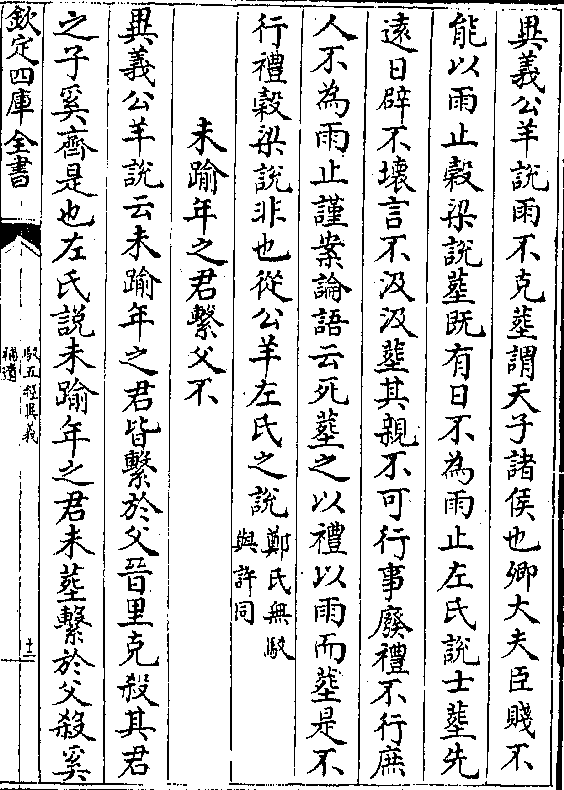 異義公羊說雨不克塟謂天子諸侯也卿大夫臣賤不
能以雨止穀梁說塟既有日不為雨止左氏說士塟先
逺日辟不壞言不汲汲塟其親不可行事廢禮不行庶
人不為雨止謹案論語云死塟之以禮以雨而塟是不
行禮穀梁說非也從公羊左氏之說鄭氏無駁與許同
未踰年之君繫父不
異義公羊說云未踰年之君皆繫於父晉里克殺其君
之子奚齊是也左氏說未踰年之君未塟繫於父殺奚
欽定四庫全書
駁五經異義
補遺
十二